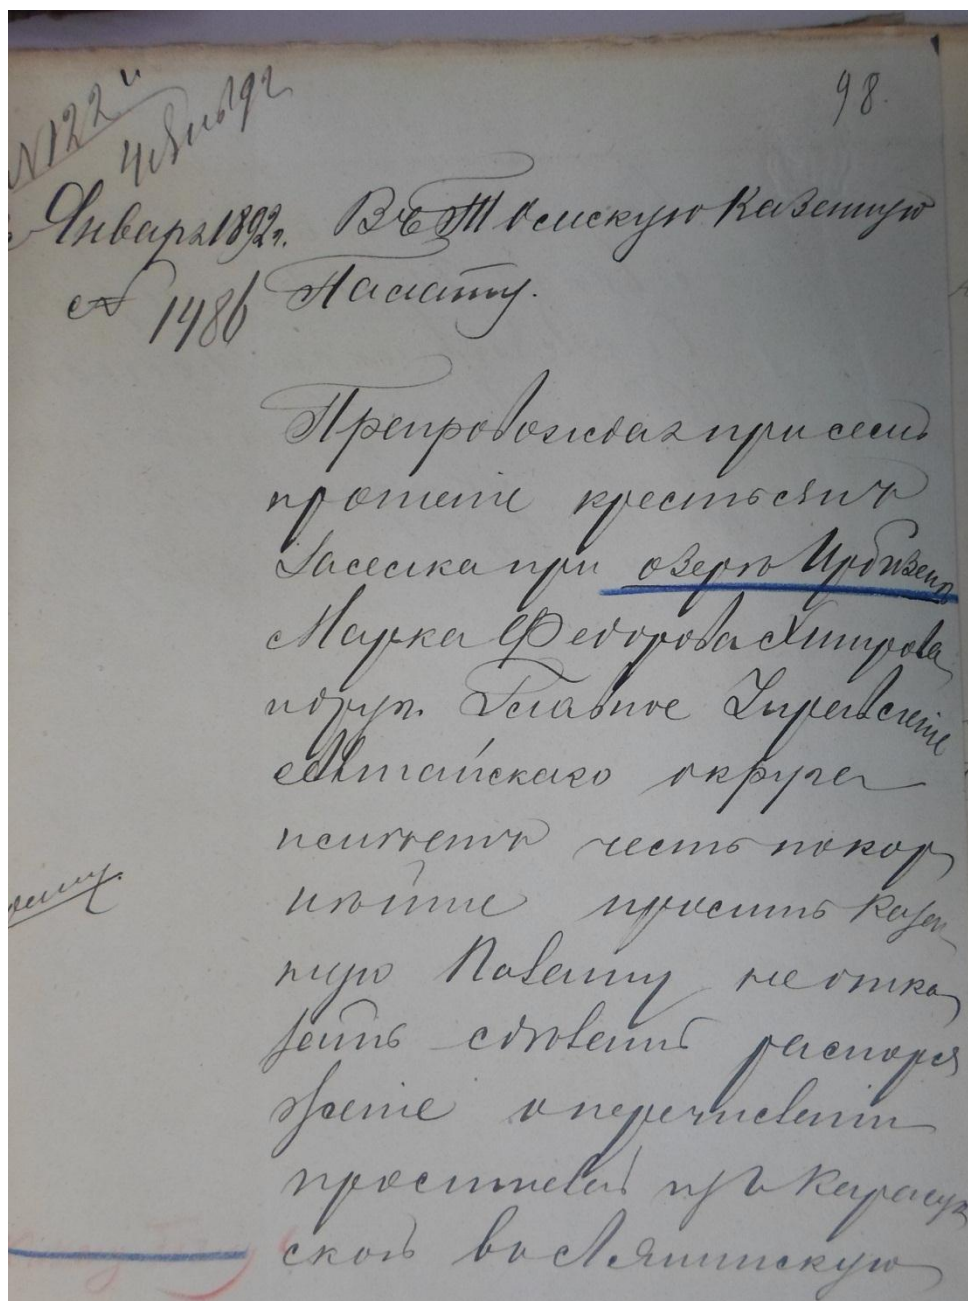 98.
N 122
4 Янв 92
Января 1892 г.
N 1486
Въ Томскую Казенную
Палату.
Препровождая при семъ
прошеніе крестьянъ
заселка при озерѣ
Марка Федорова
Главное Управленіе
Алтайскаго округа
имѣетъ честь покор
нѣйше просить Казен
ную Палату не отка
зать сдѣлать распоря
женіе о перечисленіи
просителей изъ Карасук
ской во Лянинскую